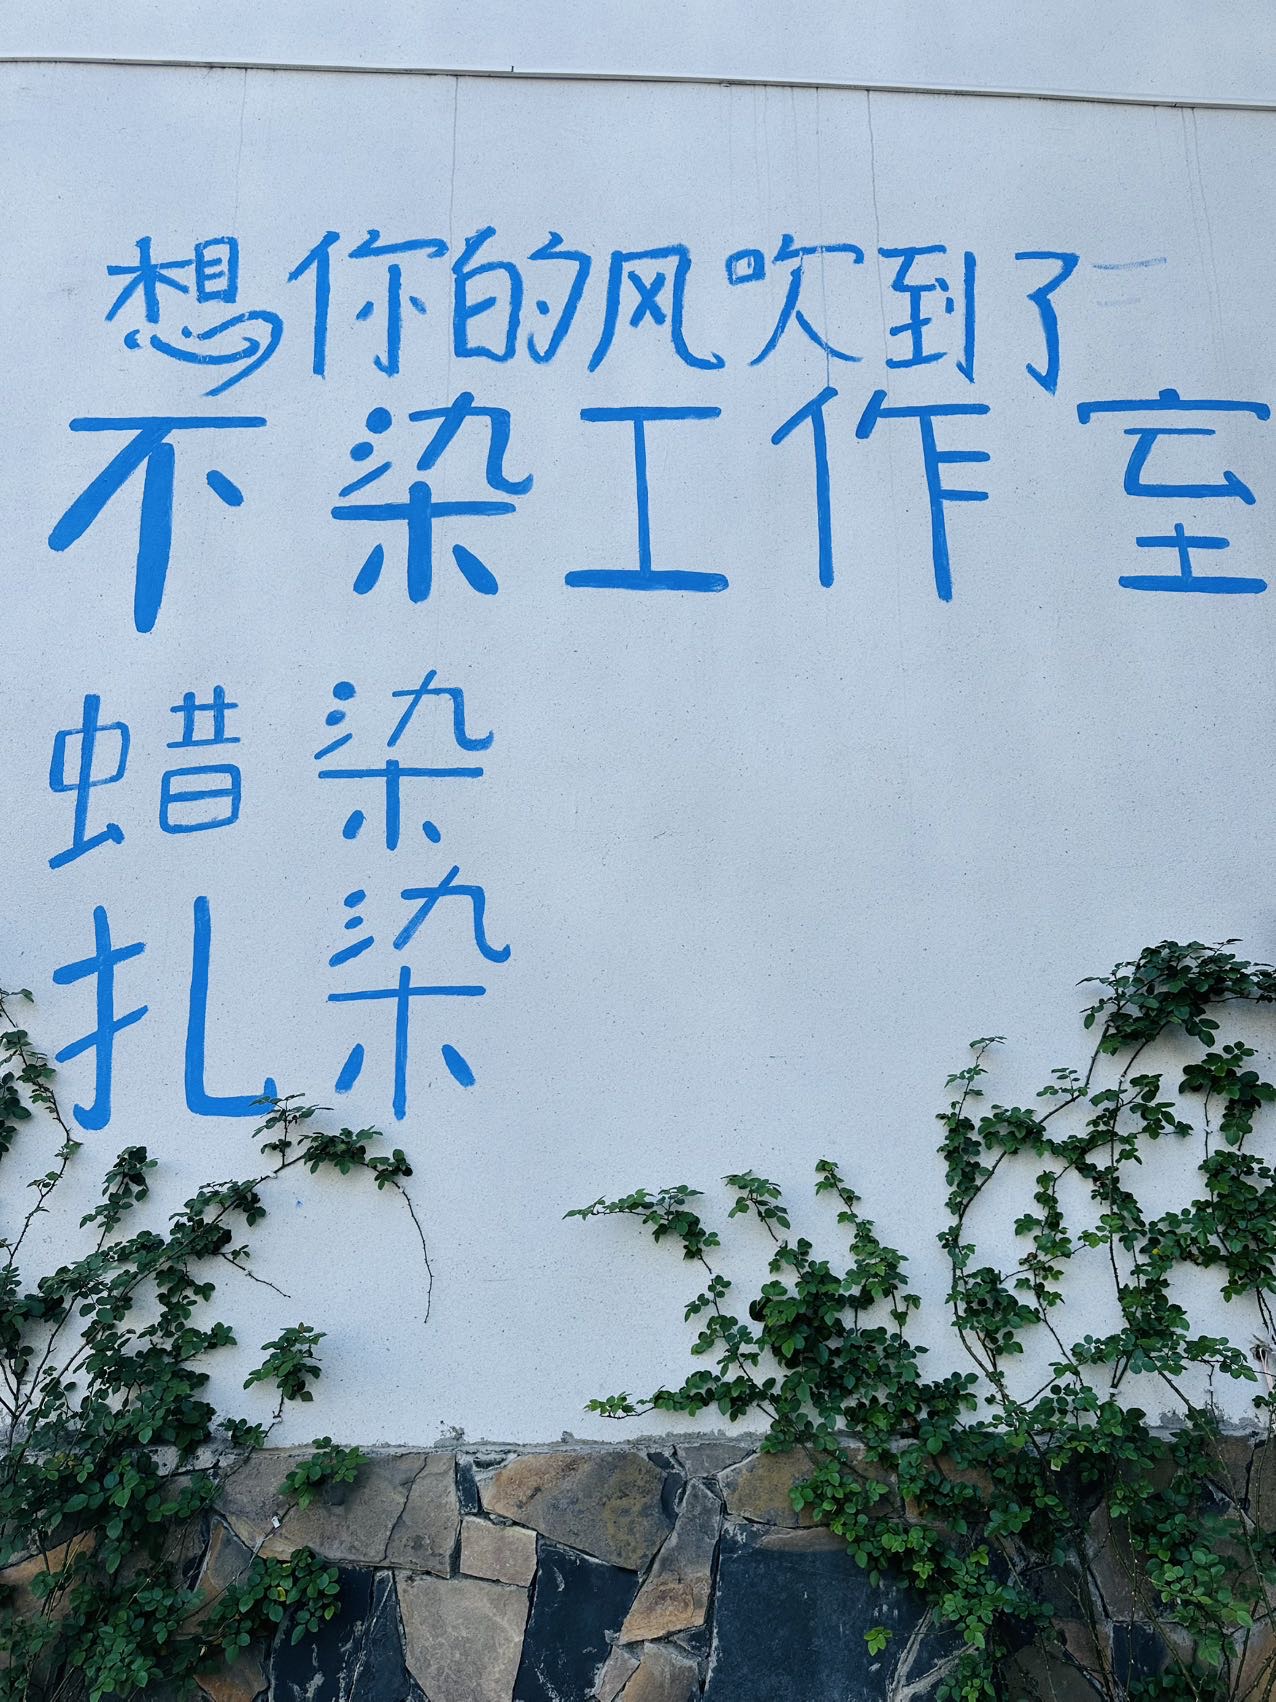 想你的风吹到了
不染工作室
蜡染
扎染